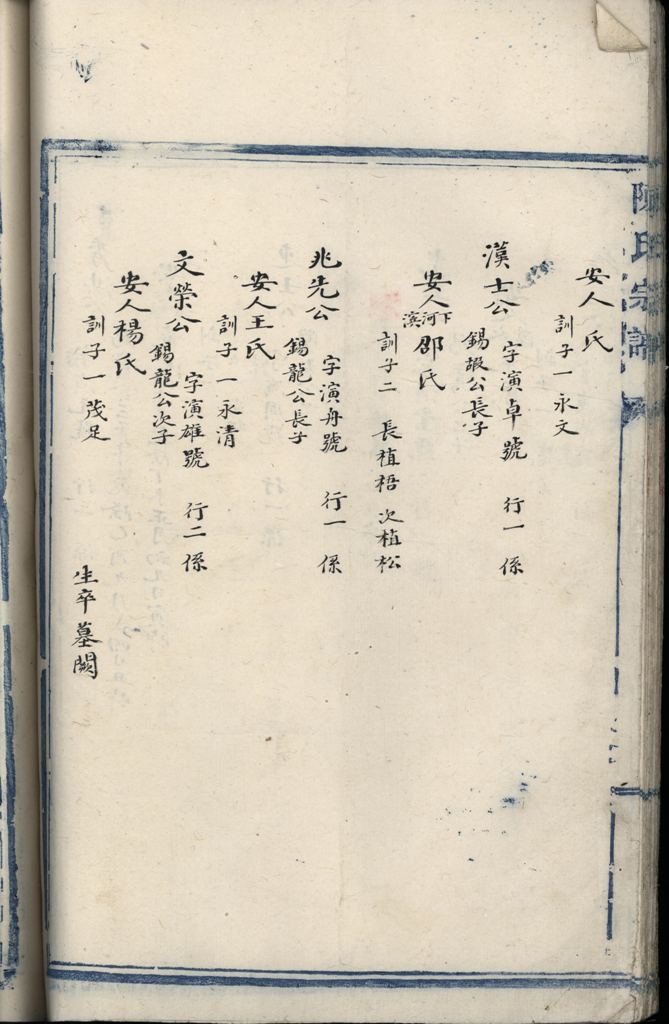 陳氏宗譜
安人 氏
訓子一永文
漢士公 字演卓號 行一 係
錫嘏公長子
安人下河濱邵氏
訓子二 長植梧 次植松
兆先公 字演舟號 行一 係
錫龍公長子
安人王氏
訓子一永清
文榮公 字演雄號 行二 係
錫龍公次子
安人楊氏
訓子一茂足
生卒墓闕